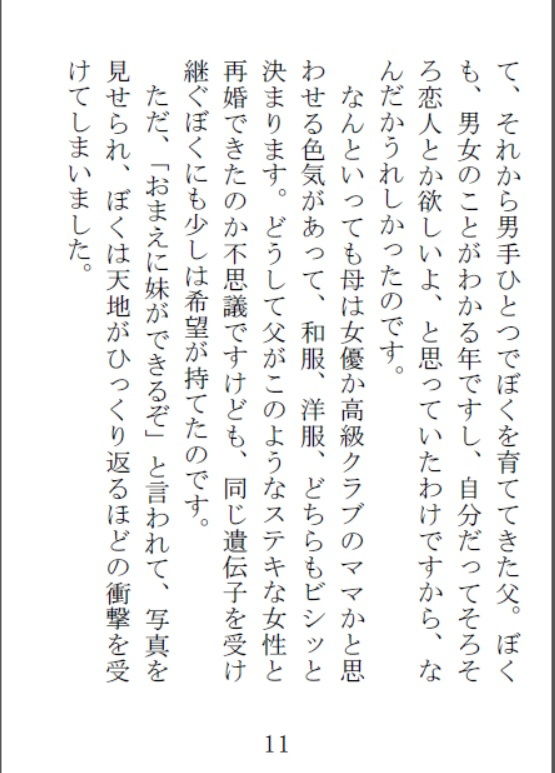 て、それから男手ひとつでぼくを育ててきた父。ぼく
も、男女のことがわかる年ですし、自分だってそろそ
ろ恋人とか欲しいよ、と思っていたわけですから、な
んだかうれしかったのです。
なんといっても母は女優か高級クラブのママかと思
わせる色気があって、和服、洋服、どちらもビシッと
決まります。どうして父がこのようなステキな女性と
再婚できたのか不思議ですけども、同じ遺伝子を受け
継ぐぼくにも少しは希望が持てたのです。
ただ、「おまえに妹ができるぞ」と言われて、写真を
見せられ、ぼくは天地がひっくり返るほどの衝撃を受
けてしまいました。
11